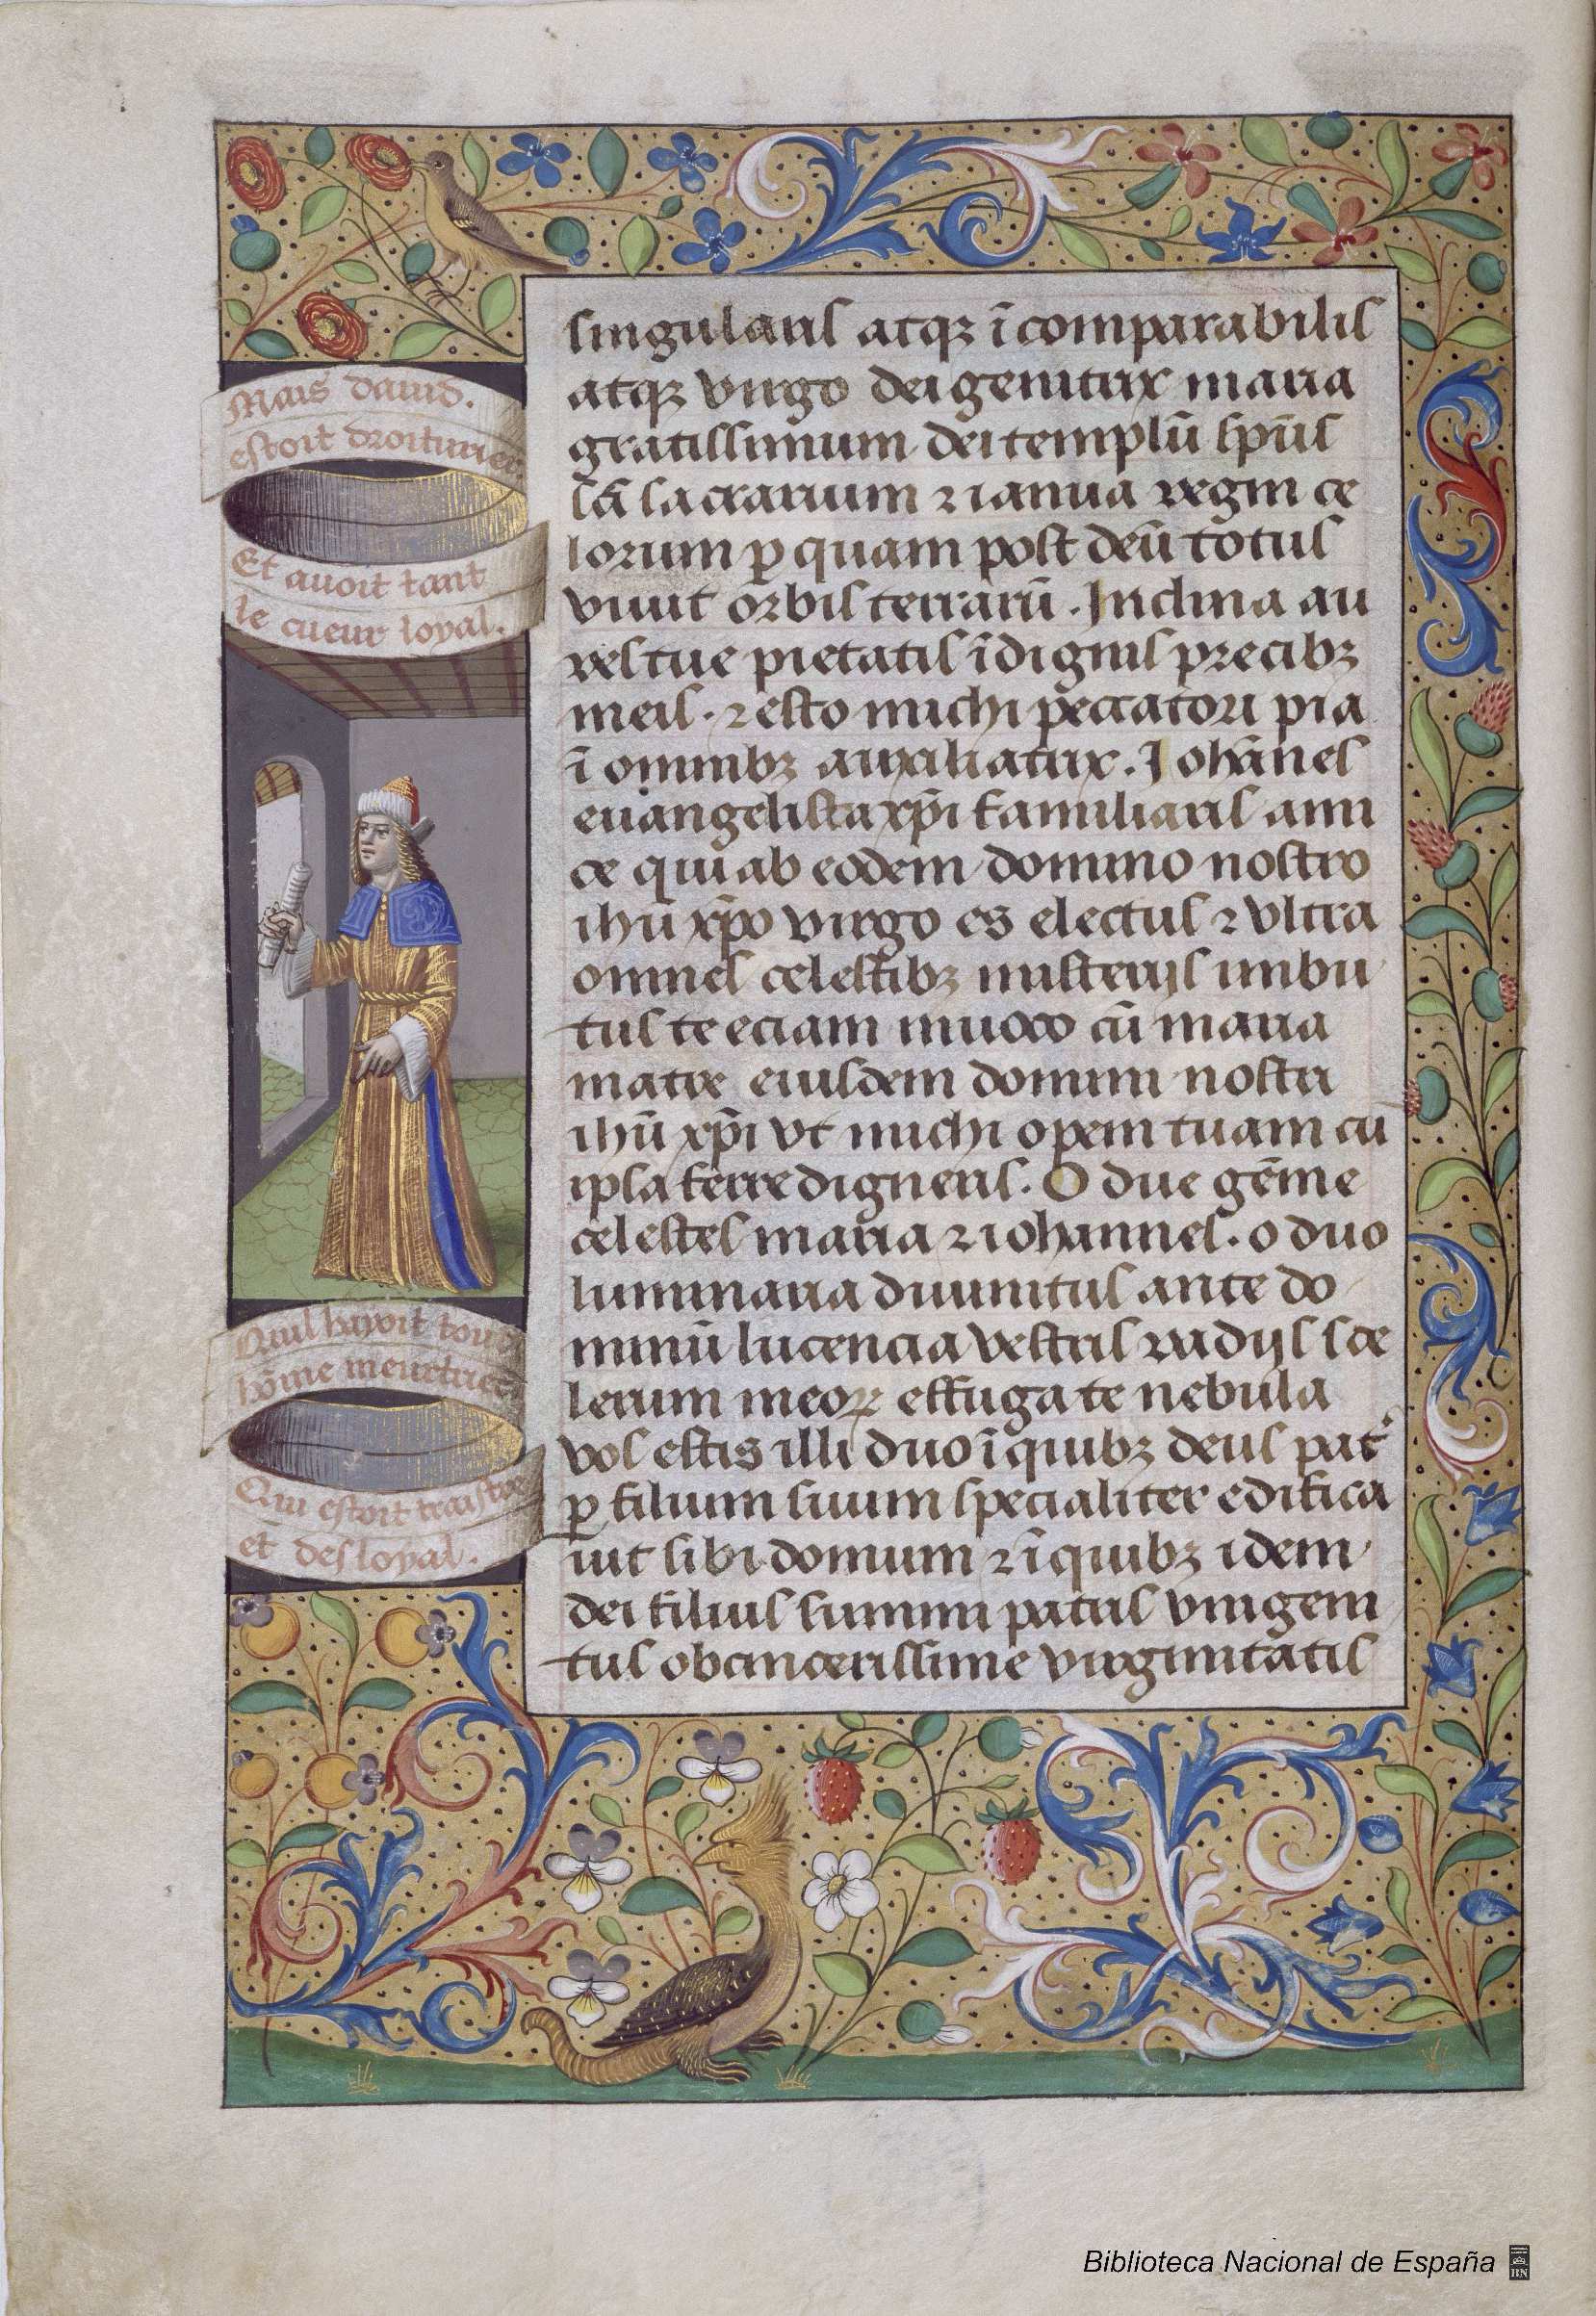 Mais dauid.
estoit droiturier
Et auoit tant
le cueur loyal.
Quil hayoit tout
hōme meurtrier
Qui estoit traistre
et desloyal.
singularis atqꝫ īcomparabilis
atqꝫ virgo dei genitrix maria
gratissimum dei templū spūs
sā sacrarium ⁊ ianua regni ce
lorum ꝑ quam post deū totus
viuit orbis terrarū. Inclina au
res tue pietatis īdignis precibꝫ
meis. ⁊ esto michi peccatori pia
ī omnibꝫ auxiliatrix. Iohānes
euangelista xp̄i familiaris ami
ce qui ab eodem domino nostro
ihū xp̄o virgo es electus ⁊ vltra
omnes celestibꝫ misterijs imbu
tus te eciam inuoco cū maria
matre eiusdem domini nostri
ihū xp̄i vt michi opem tuam cū
ipsa ferre digneris. O due gēme
celestes maria ⁊ iohannes. o duo
luminaria diuinitus ante do
minū lucencia vestris radijs sce
lerum meoꝝ effugate nebula
vos estis illi duo ī quibꝫ deus pat̄
ꝑ filium suum specialiter edifica
uit sibi domum ⁊ ī quibꝫ idem
dei filius summi patris vnigeni
tus ob sincerissime virginitatis
Biblioteca Nacional de España
BN